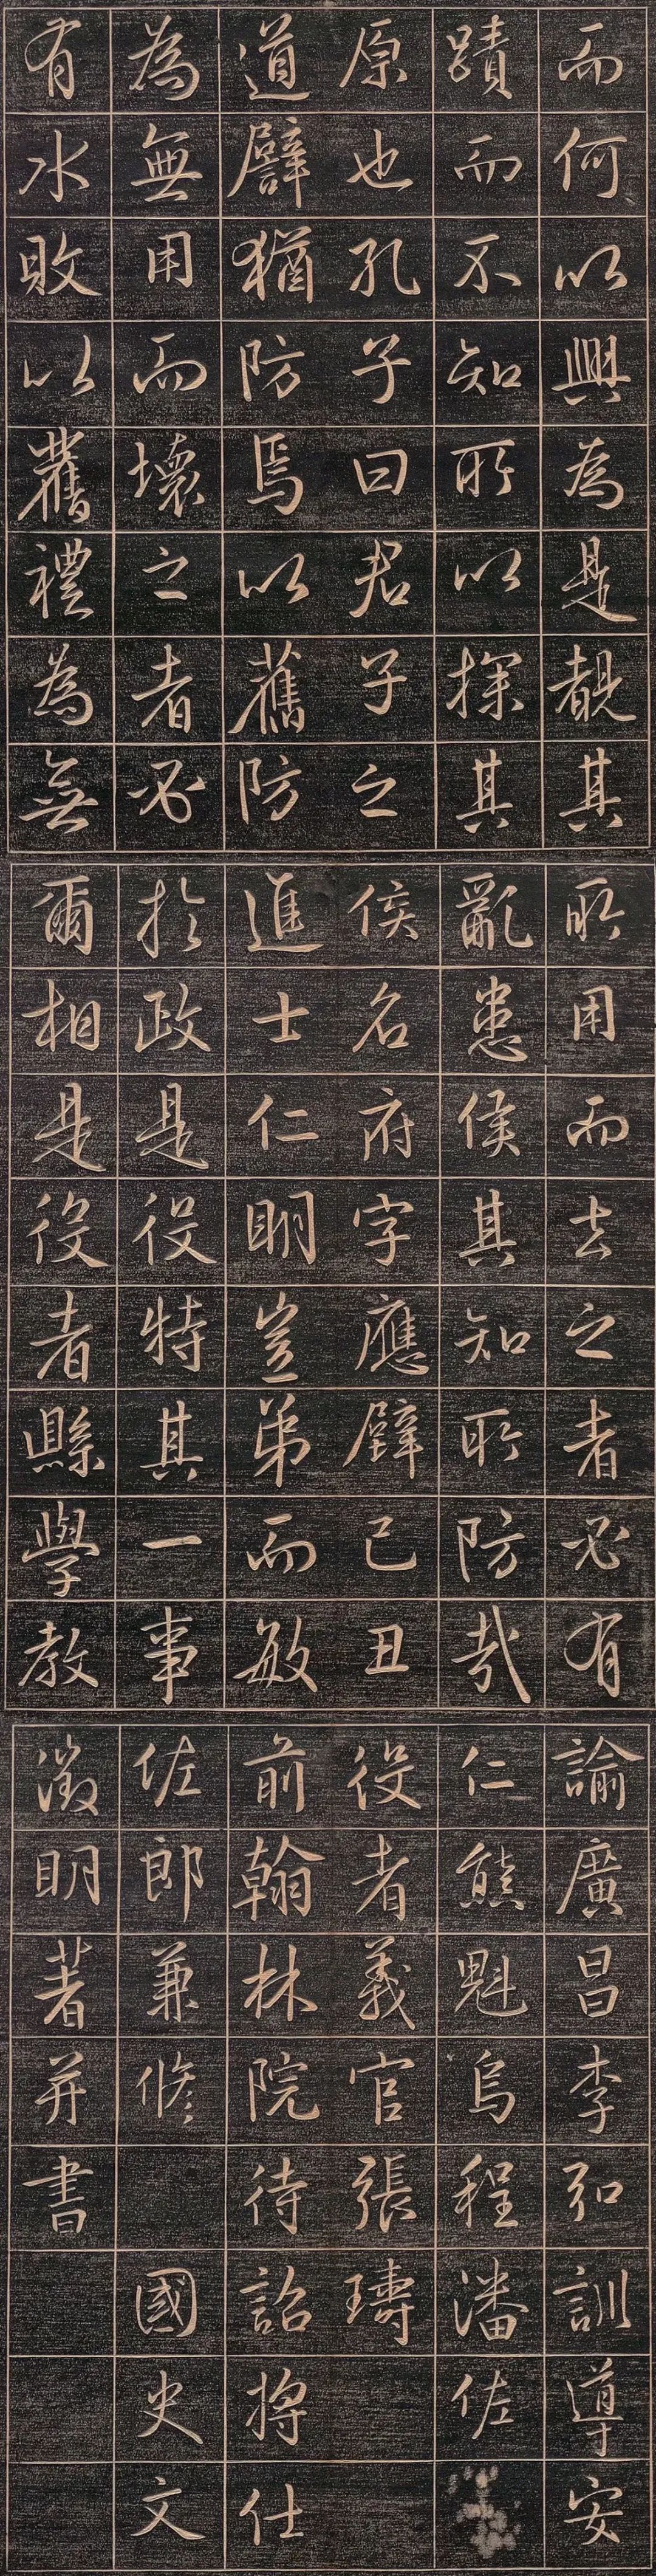 而何以興為是覩其
蹟而不知所以探其
原也孔子曰君子之
道譬猶防焉以舊防
為無用而壞之者必
有水敗以舊禮為無
所用而去之者必有
亂患侯其知所防哉
侯名府字應辟己丑
進士仁明豈弟而敏
於政是役特其一事
爾相是役者縣學教
諭廣昌李弘訓導安
仁熊魁烏程潘佐
役者義官張璹
前翰林院待詔將仕
佐郎兼修 國史文
徵明著并書